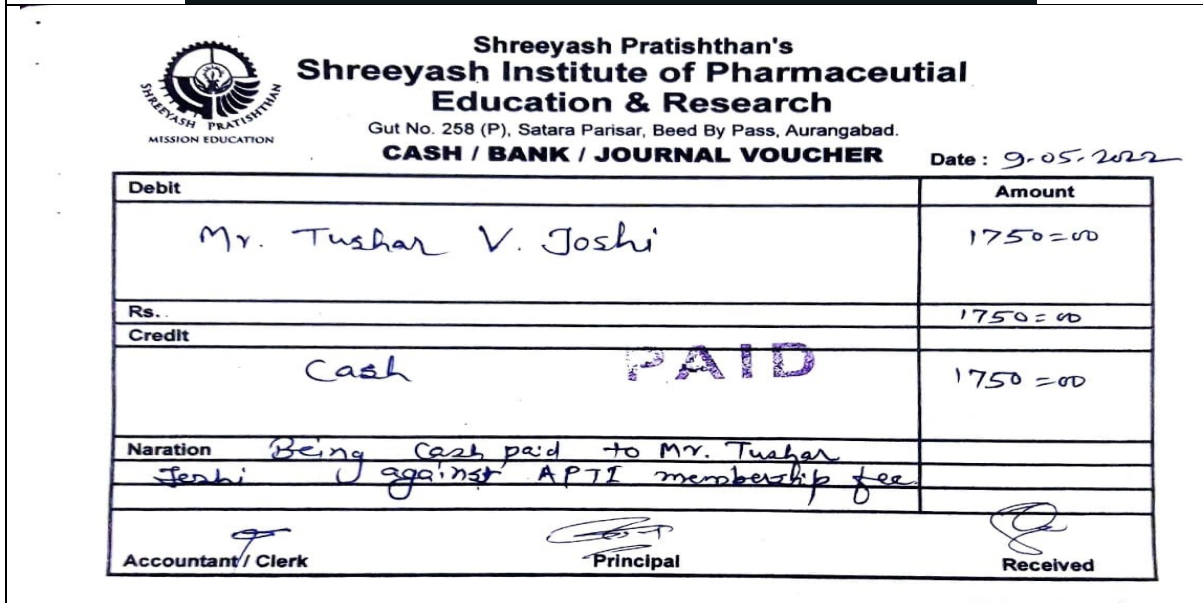 SHREEYASH PRATISHTHAN
MISSION EDUCATION
Shreeyash Pratishthan's
Shreeyash Institute of Pharmaceutial
Education & Research
Gut No. 258 (P), Satara Parisar, Beed By Pass, Aurangabad.
CASH / BANK / JOURNAL VOUCHER Date : 9.05.2022
Debit Amount
Mr. Tushar V. Joshi 1750=00
Rs. 1750=00
Credit
Cash PAID 1750=00
Naration Being Cash paid to Mr. Tushar
Joshi against APTI membership fee.
Accountant / Clerk Principal Received